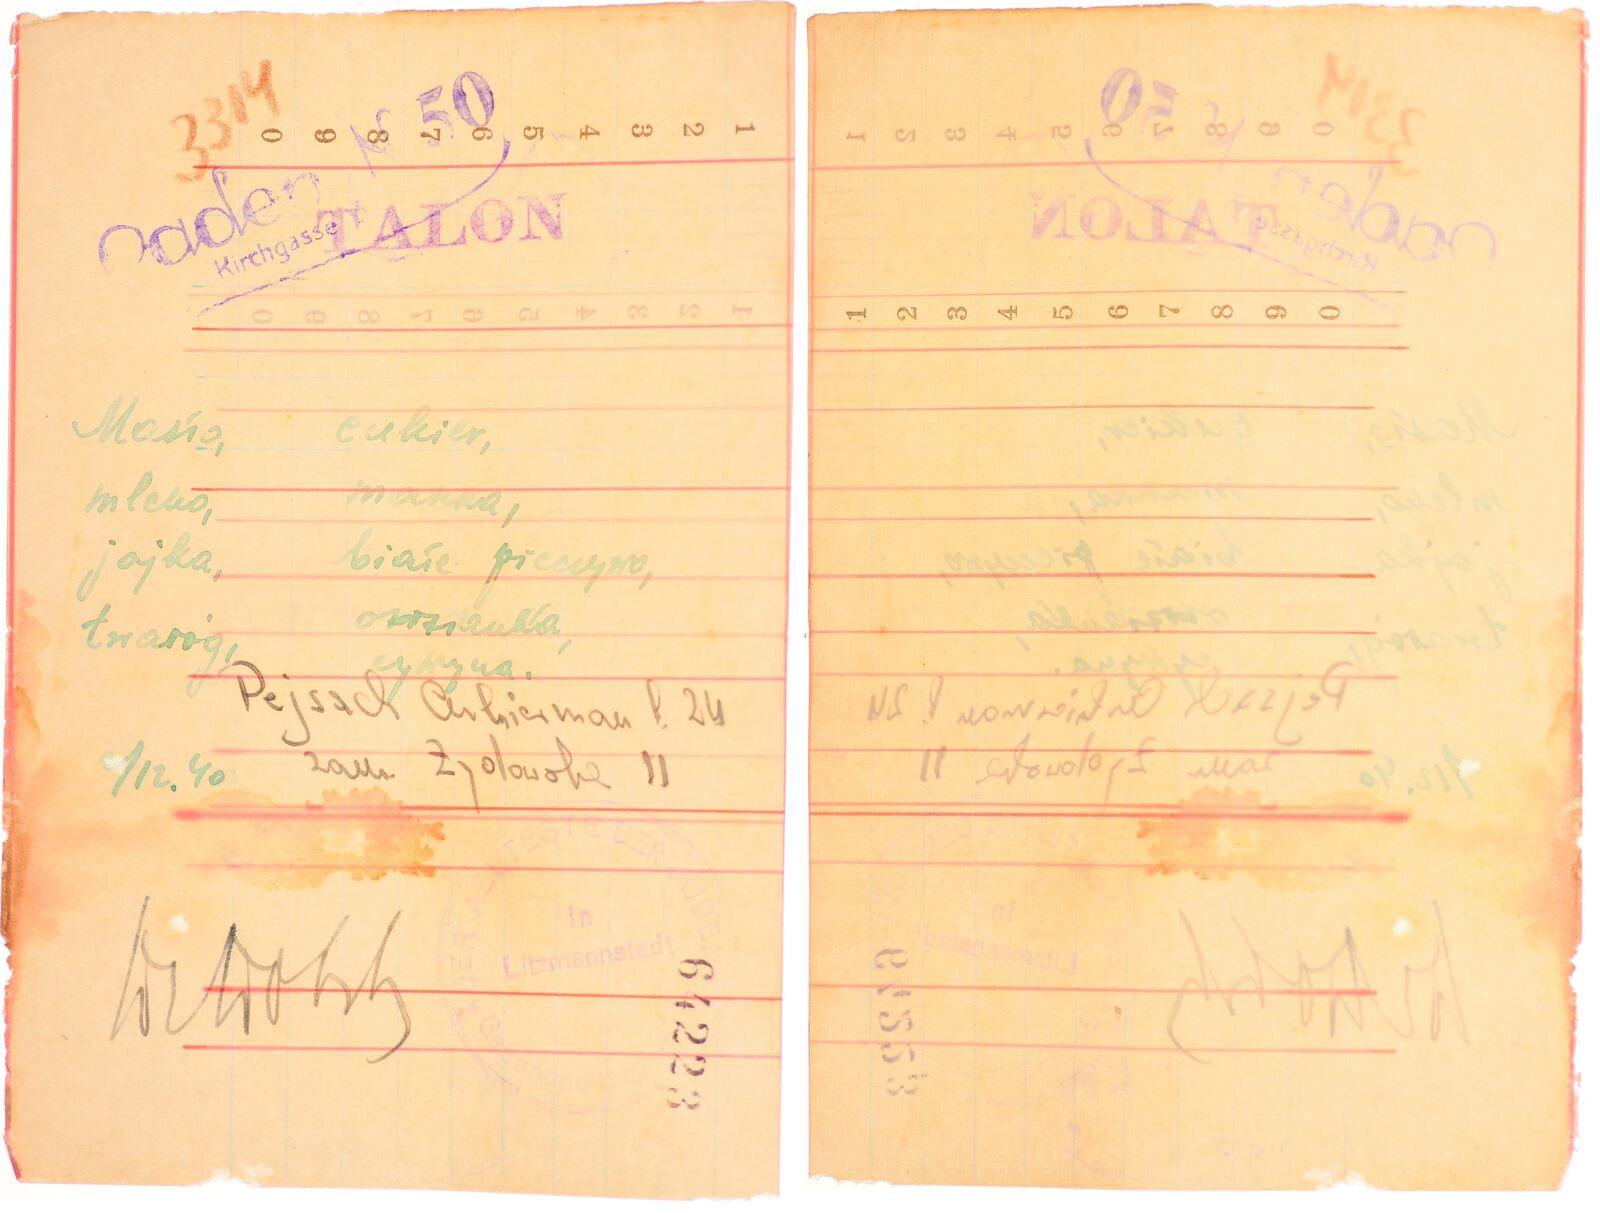 3314
N 50
0 9 8 7 6 5 4 3 2 1
Laden
Kirchgasse
TALON
Masło, cukier,
mleko, manna,
jajka, białe pieczywo,
twaróg, owsianka,
cytryna.
Pejsach Cukierman l. 24
zam Żydowska 11
1/12.40
DER AELTESTE DER JUDEN
in
Litzmannstadt
64223
1 2 3 4 5 6 7 8 9 0